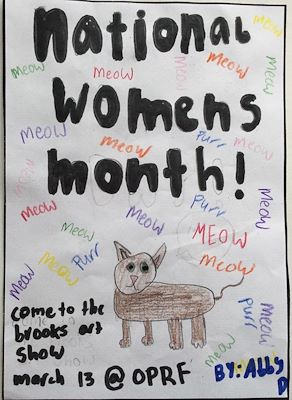 National
Meow
Meow
Meow
Meow
Meow
Meow
Womens
Meow
Meow
Purr
Meow
month!
Meow
Meow
Purr
Meow
Meow
Meow
MEOW
Purr
Meow
Meow
Meow
come to the
brooks art
show
march 13 @ OPRF
Meow
Purr
Meow
BY: Abby
D